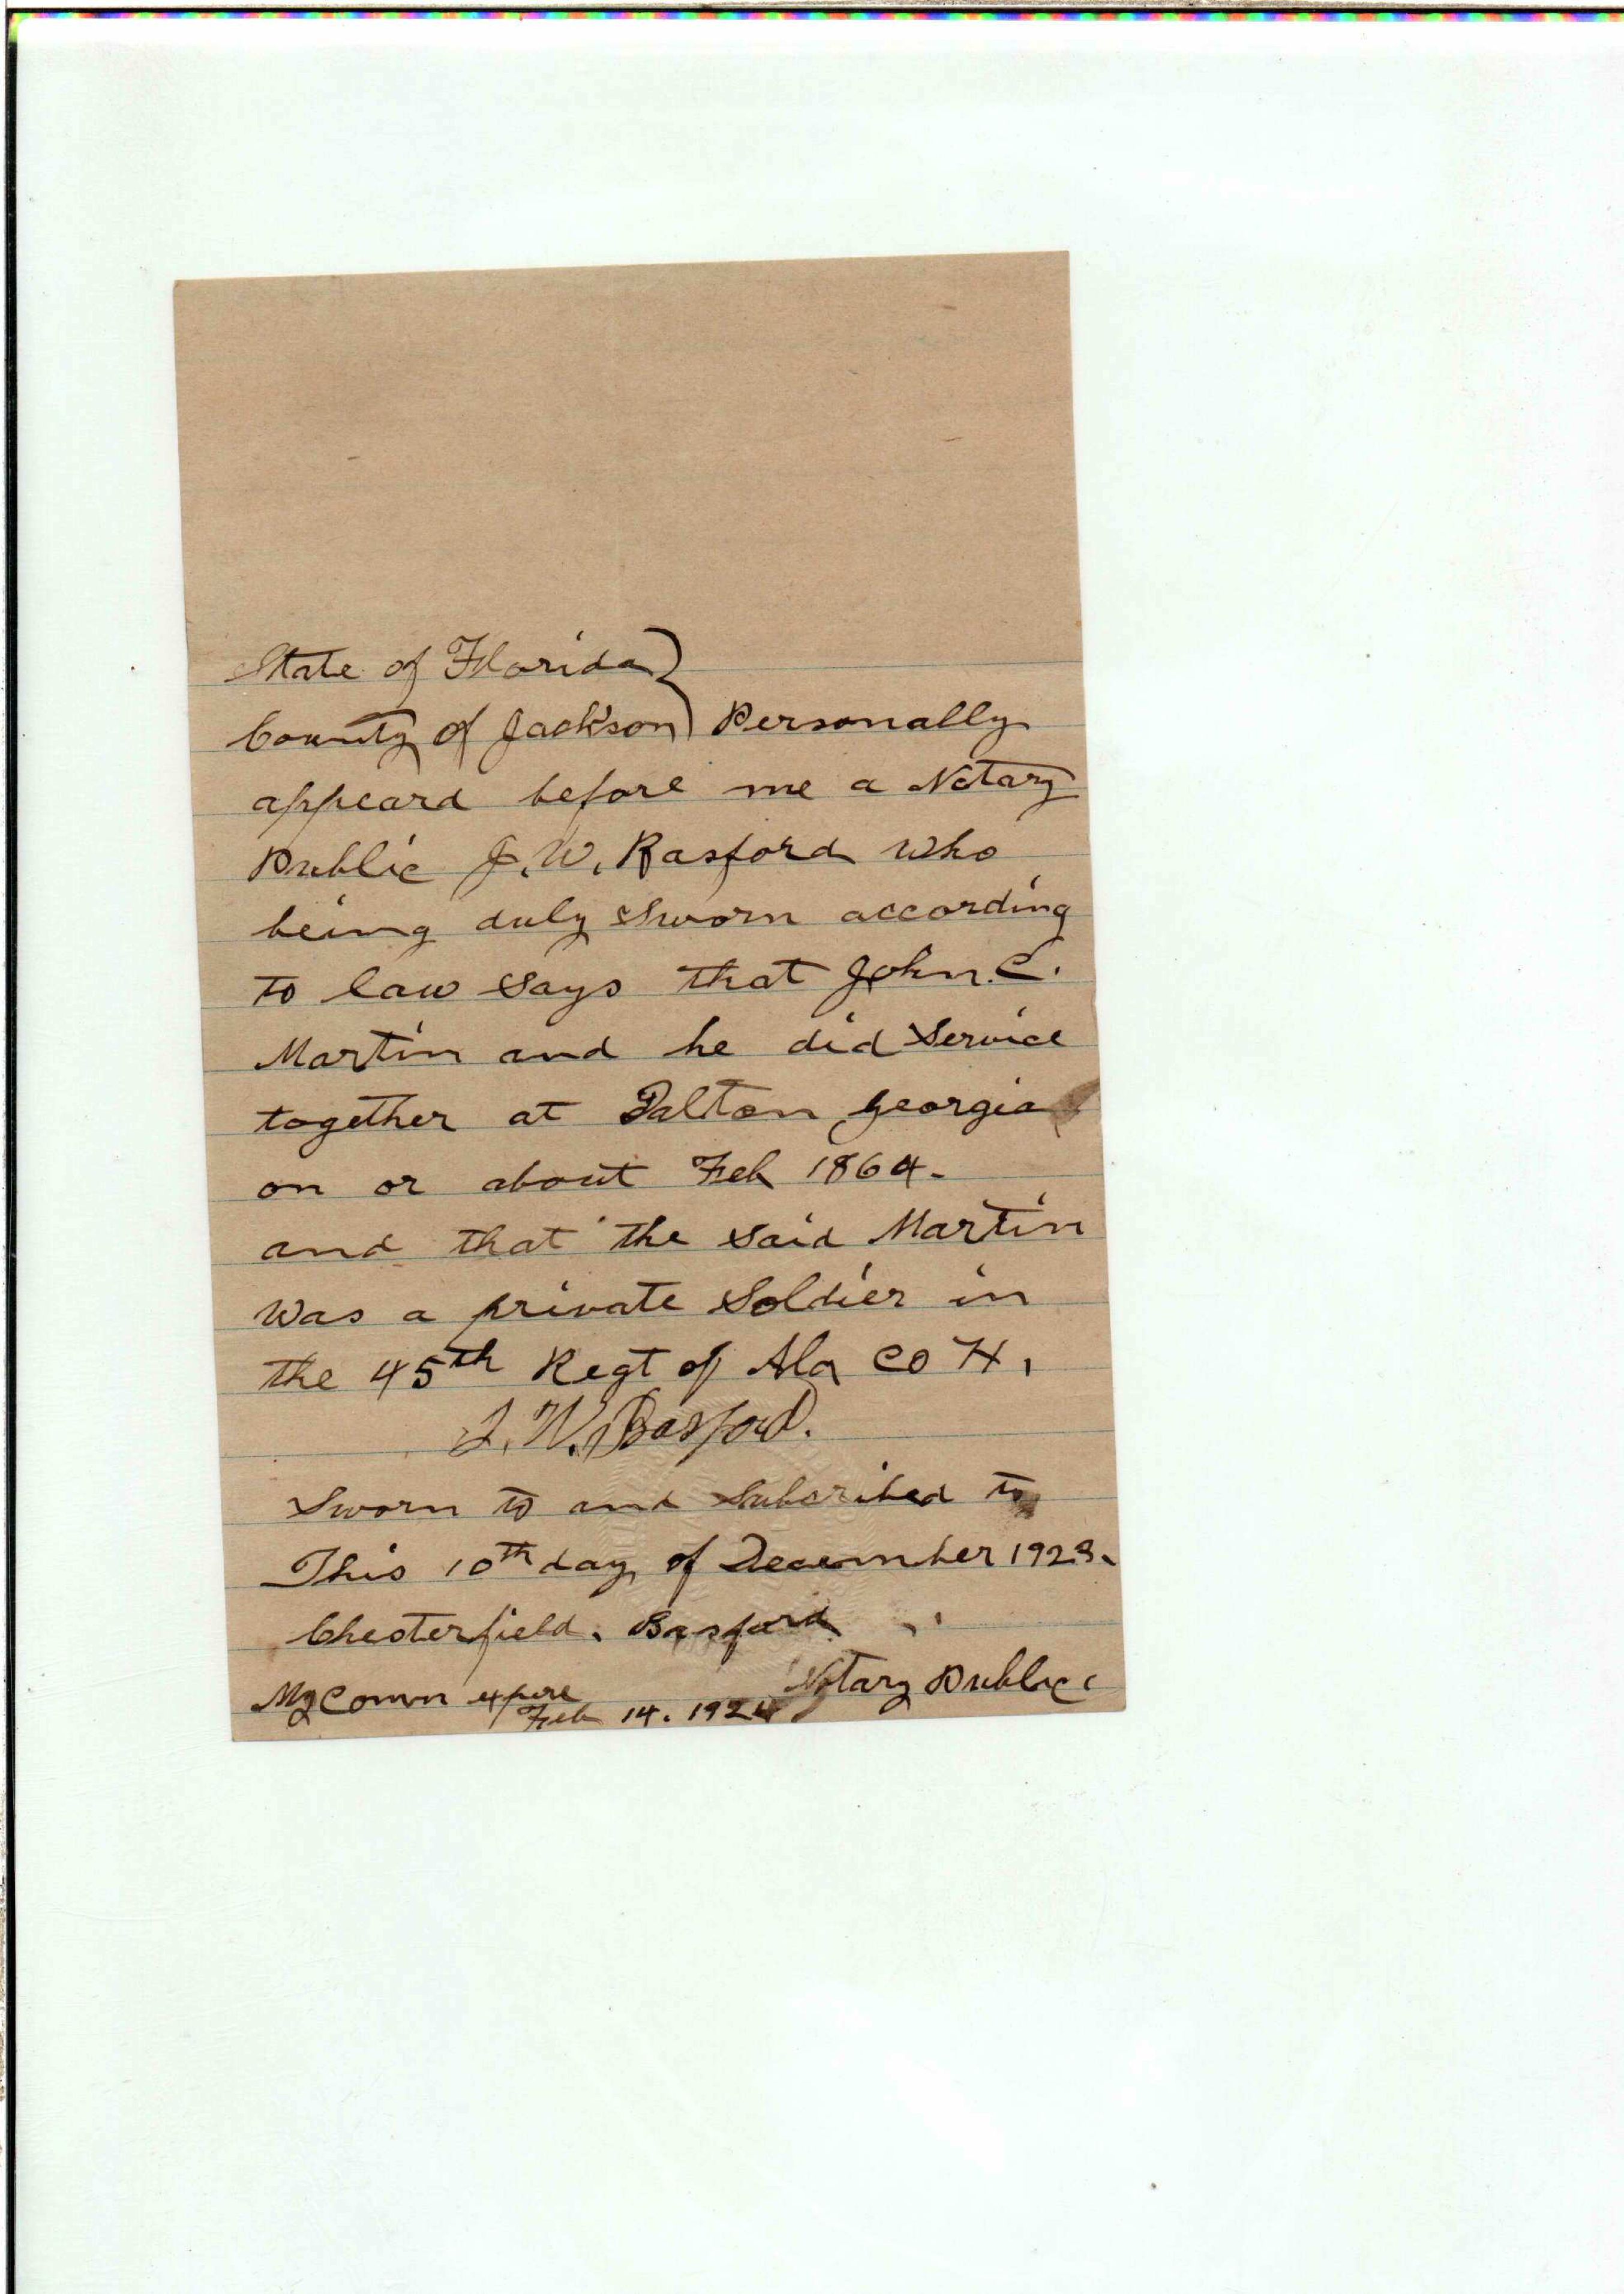 State of Florida)
County of Jackson) Personally
appeard before me a Notary
Public J. W. Basford who
being duly Sworn according
to law says that John. C.
Martin and he did Service
together at Dalton Georgia
on or about Feb 1864.
and that the said Martin
was a private Soldier in
the 45th Regt of Ala CO H.
J. W. Basford.
Sworn to and Subscribed to
This 10th day of December 1923.
Chesterfield. Basford
Notary Public
My Comm expire
Feb 14.